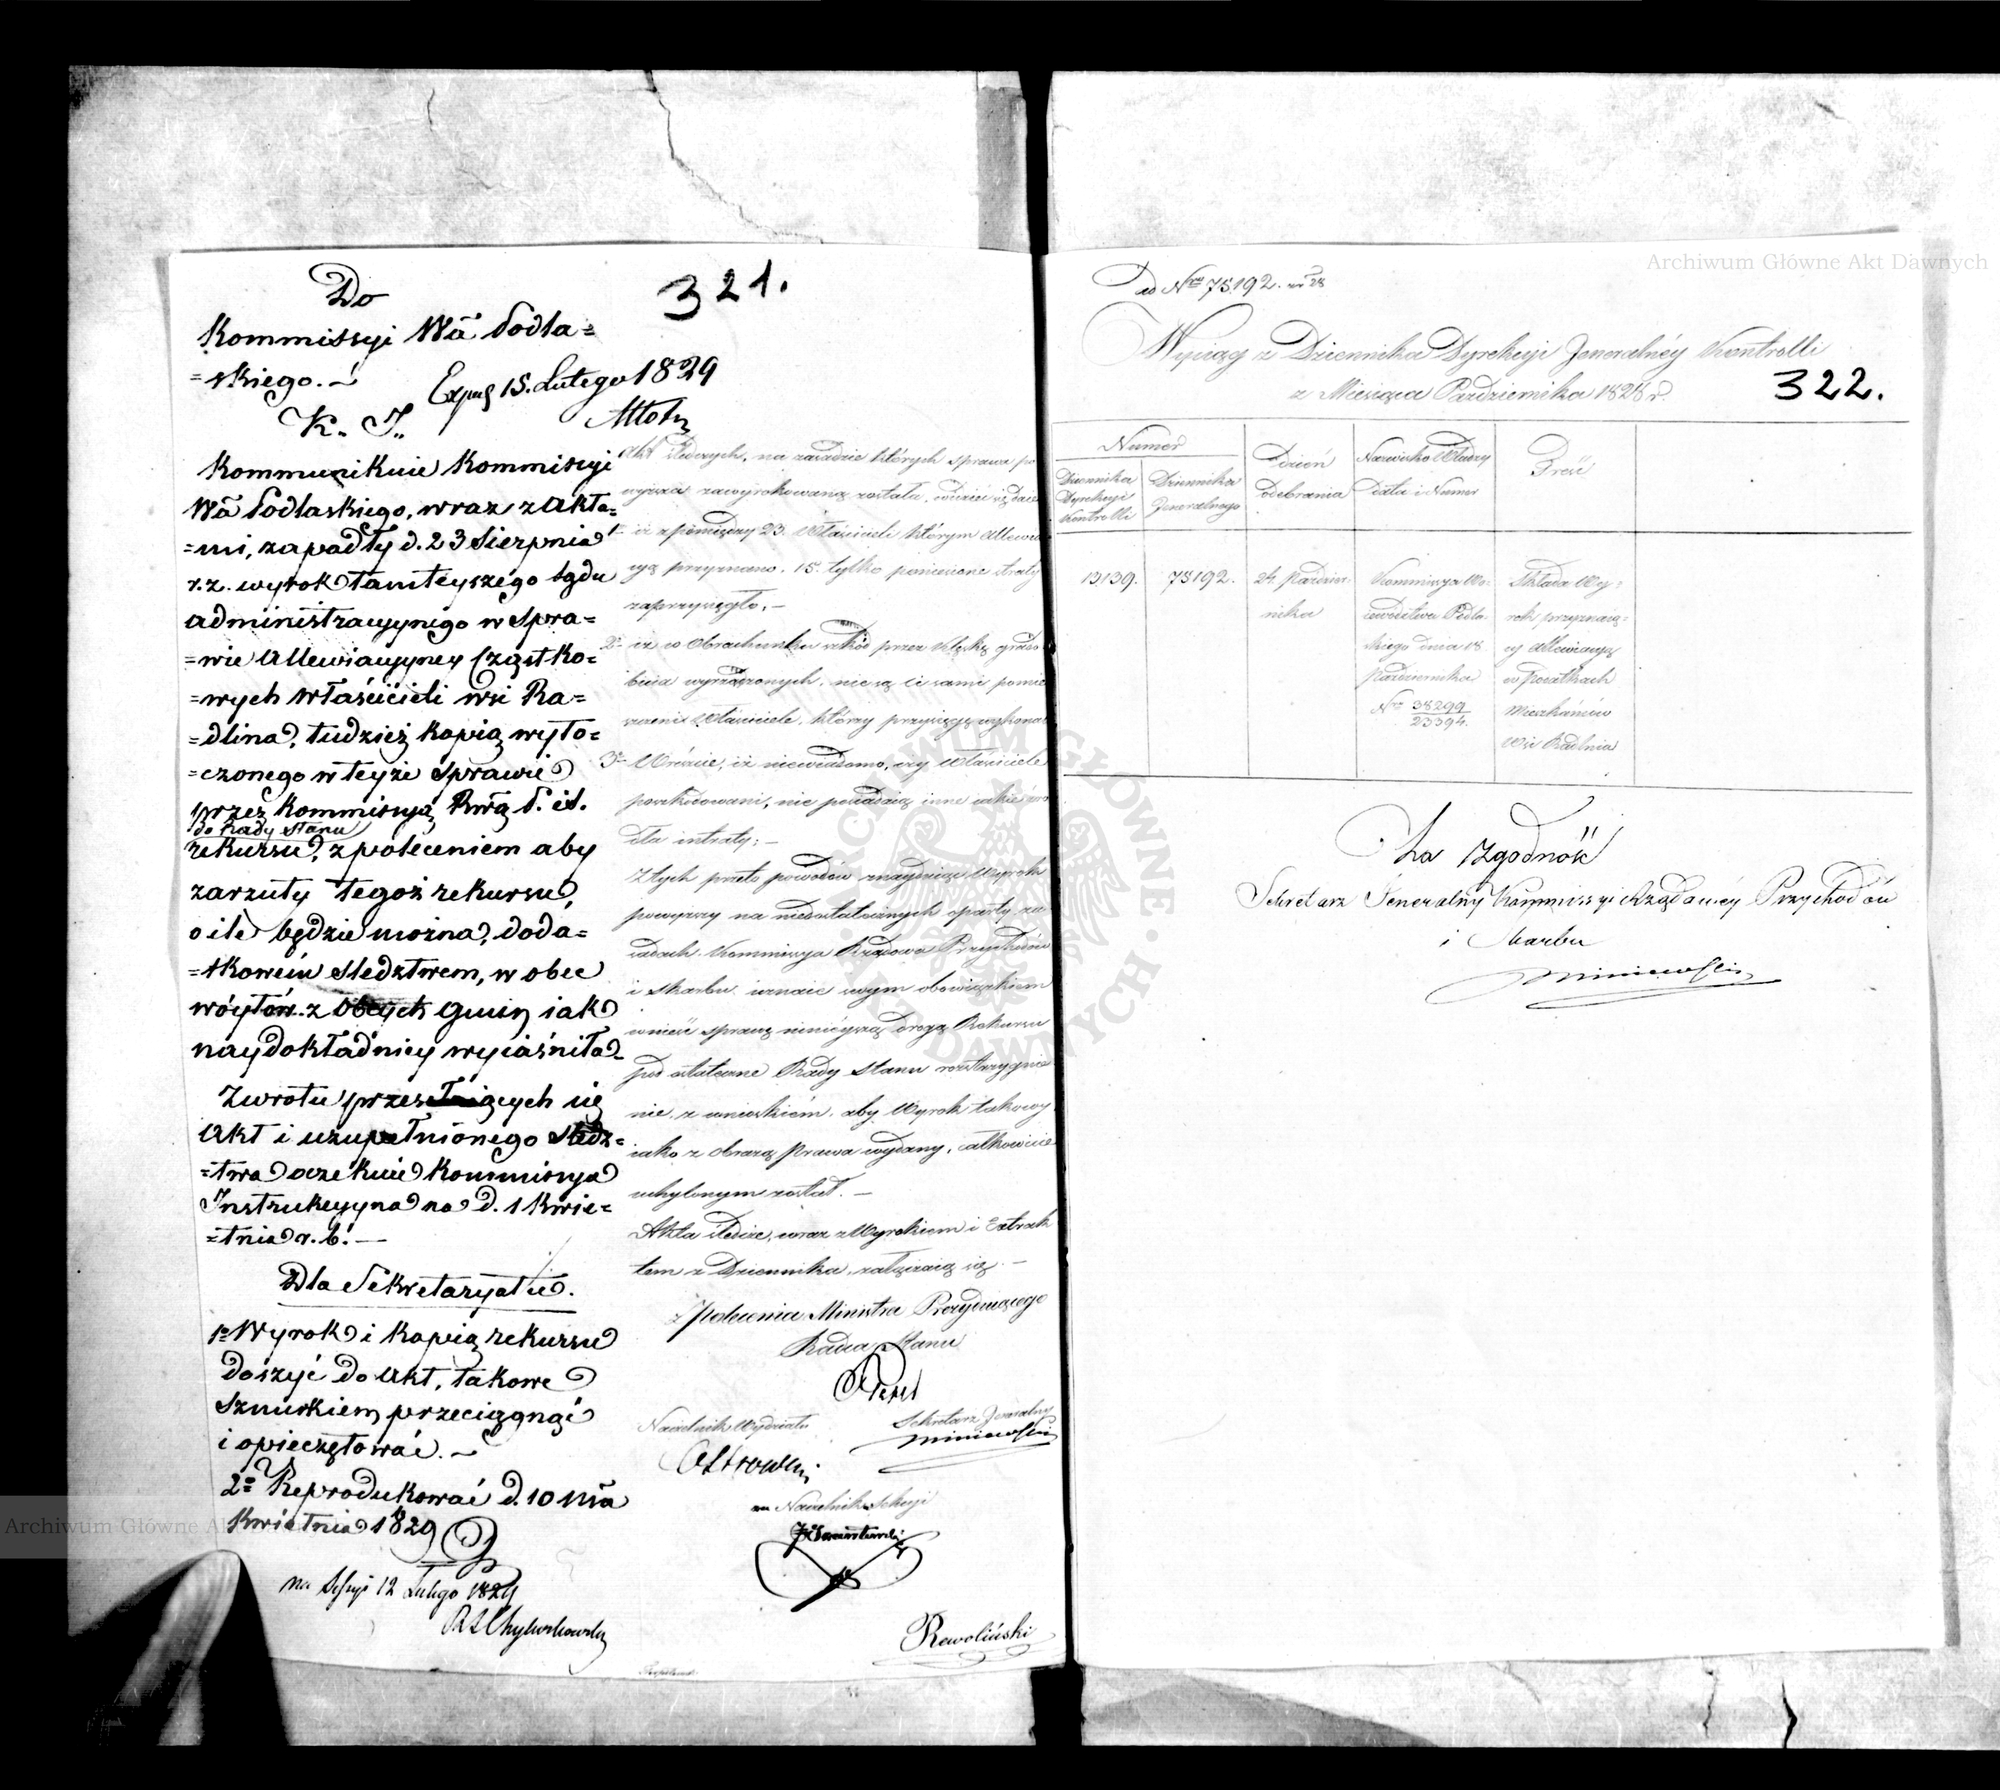 321.
Do
Kommissyi Wā Podla=
=skiego. —
Exped 15. Lutego 1829
K. I.
Kommunikuie Kommissyi
Wā Podlaskiego, wraz z Akta=
=mi, zapadły d. 23 Sierpnia
r. z. wyrok tamteyszego Sądu
administracyynego w Spra=
=wie Allewiacyyney Cząstko=
=wych właścicieli wsi Ra=
=dlina, tudzież kopią wyto=
=czonego w teyże Sprawie
przez Kommissyą Rwą P. i S.
do Rady Stanu
rekursu, z poleceniem aby
zarzuty tegoż rekursu,
o ile będzie można, doda=
=tkowém Sledztwem, w obec
wóytów z Obcych Gmin jak
naydokładniey wyiaśniła
Zwrotu przesełaiących się
Akt i uzupełnionego Sledz=
=twa oczekuie Kommissya
Instrukcyyna na d. 1 Kwie=
=tnia r. b. —
Dla Sekretaryatu.
1º Wyrok i kopią rekursu
doszyć do Akt, takowe
Sznurkiem przeciągnąć
i opieczętować. —
2º Reprodukować d. 10 mā
Kwietnia 1829
na Sessyi 12 Lutego 1829
Akt śledczych, na zasadzie których sprawa po
wyższa zawyrokowaną została, widzieć się daie
1º iż z pomiędzy 23. Właścicieli którym Allewia
cyą przyznano, 15. tylko poniesione straty
zaprzysięgło, —
2º iż w Obrachunku szkód przez klęskę grado
bicia wyrządzonych, nie są ci sami pomie
szczeni Właściciele, którzy przysięgę wykonali
3º Wreście, iż niewiadomo, czy Właściciele
poszkodowani, nie posiadaią inne iakie źró
dła intraty; —
Z tych przeto powodów znayduiąc Wyrok
powyższy na niedostatecznych oparty za
sadach, Kommissya Rządowa Przychodów
i Skarbu uznaie swym obowiązkiem
wnieść sprawę ninieyszą drogą Rekursu
pod ostateczne Rady Stanu rozstrzygnie
nie, z wnioskiém, aby Wyrok takowy
iako z obrazą Prawa wydany, całkowicie
uchylonym został. —
Akta śledcze, wraz z Wyrokiem i Extrak
tem z Dziennika, załączaią się. —
z Polecenia Ministra Prezyduiącego
Radca Stanu
Naczelnik Wydziału
Sekretarz Jeneralny
Ostrowski
Miniewski
Naczelnik Sekcyi
Rewoliński
ad Nrm 75192. 28
Wyciąg z Dziennika Dyrekcyi Jeneralnéy Kontrolli
z Miesiąca Października 1828 r.
322.
Numer
Dziennika Dyrekcyi Kontrolli
Dziennika Jeneralnego
Dzień odebrania
Nazwisko Władzy Data i Numer
Treść
13,139.
75192.
24 Paździer
nika
Kommissya Wo=
iewództwa Podla
skiego dnia 18
Października
Nro 38299
23394.
Składa Wy=
rok przyznaią=
cy Allewiacyą
w Podatkach
Mieszkańców
Wsi Radlina
Za Zgodność
Sekretarz Jeneralny Kommissyi Rządowéy Przychodów
i Skarbu
Miniewski
Archiwum Główne Akt Dawnych
Archiwum Główne Ak
ARCHIWUM GŁÓWNE AKT DAWNYCH